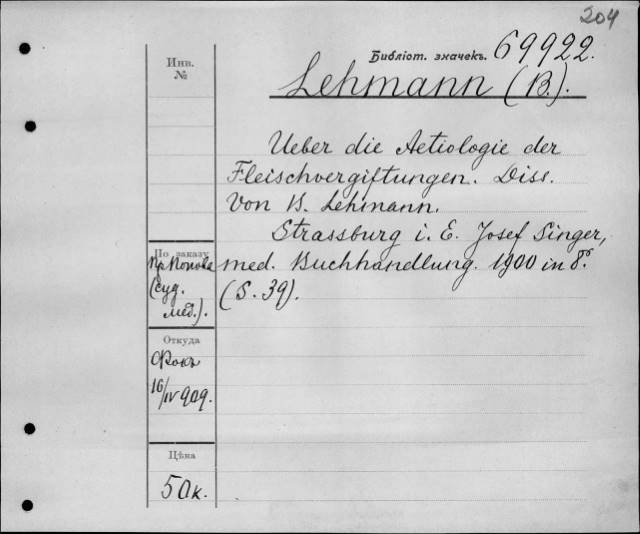 204
Библіот. значекъ. 69922.
Инв.
№
Lehmann (B.).
Ueber die Aetiologie der
Fleischvergiftungen. Diss.
Von B. Lehmann.
Strassburg i. E. Josef Singer,
med. Buchhandlung. 1900 in 8°.
(S. 39).
По заказу
Пр. Попова
(суд.
мед.).
Откуда
Фокъ
16/IV 909.
Цѣна
50 к.